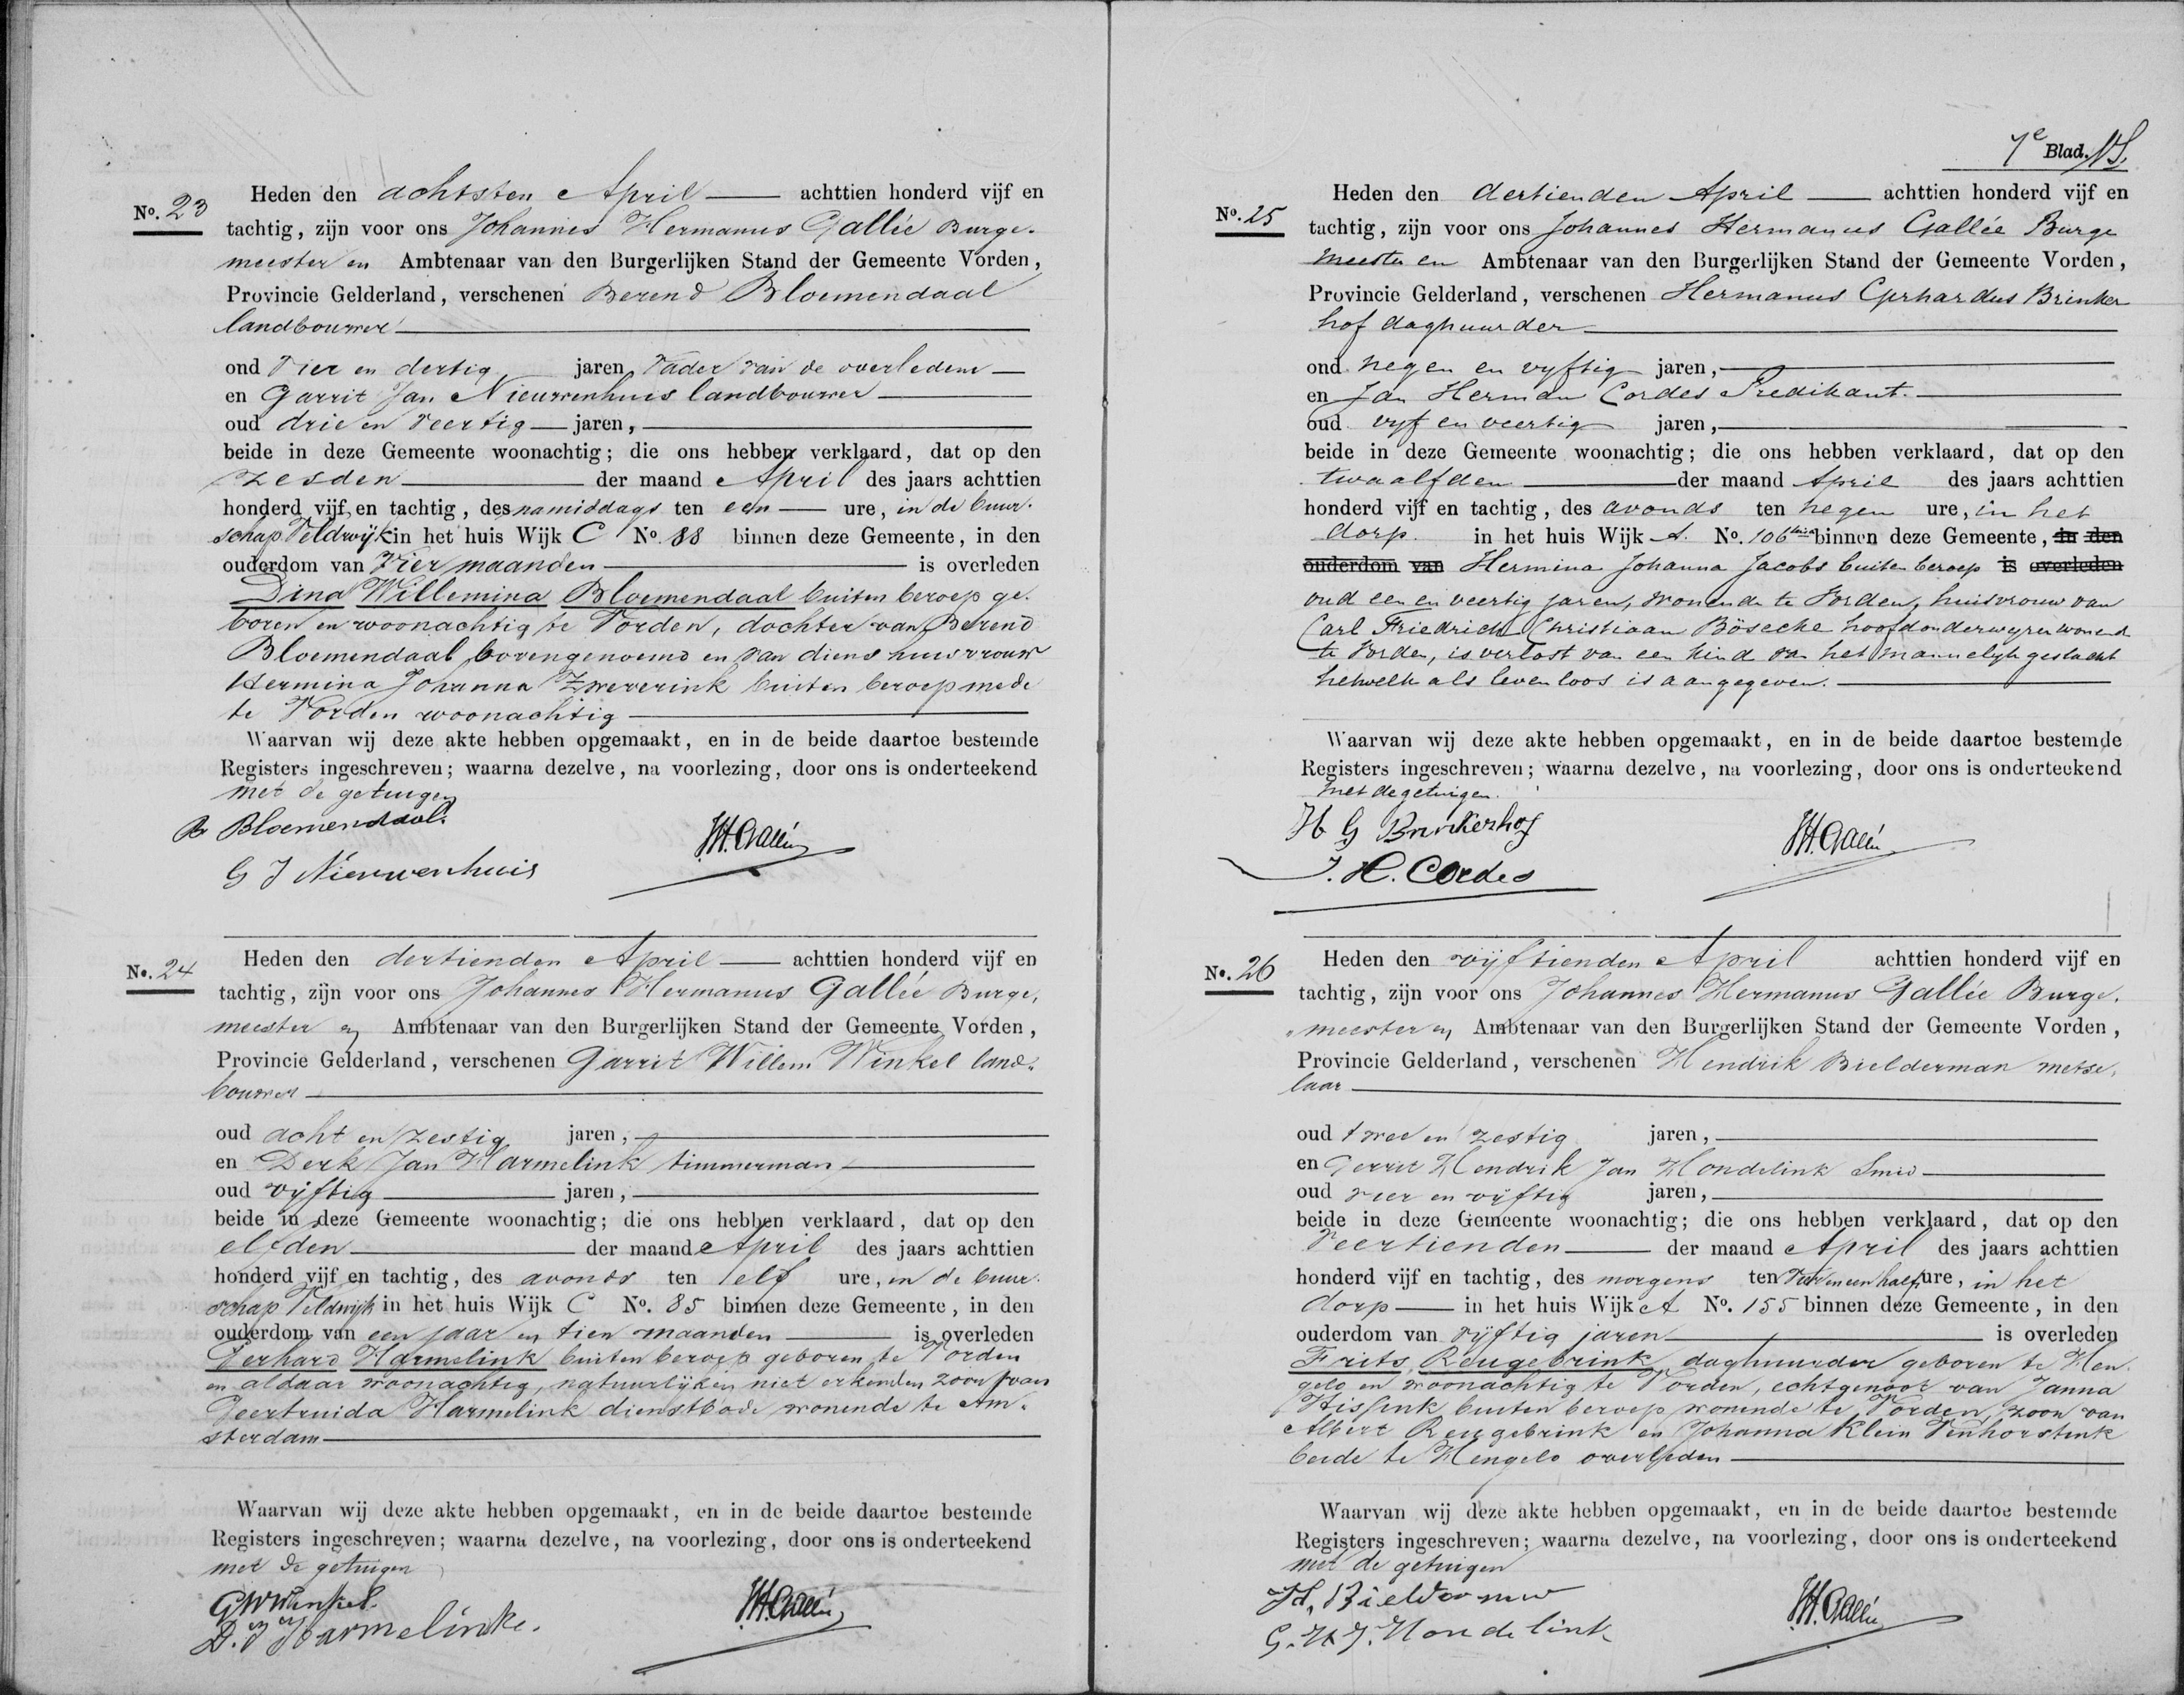 No. 23
Heden den achtsten April achttien honderd vijf en
tachtig, zijn voor ons Johannes Hermanus Gallée Burge-
meester en Ambtenaar van den Burgerlijken Stand der Gemeente Vorden,
Provincie Gelderland, verschenen Berend Bloemendaal
landbouwer
oud vier en dertig jaren, vader van de overledene
en Garrit Jan Nieuwenhuis landbouwer
oud drie en veertig jaren,
beide in deze Gemeente woonachtig; die ons hebben verklaard, dat op den
zesden der maand April des jaars achttien
honderd vijf en tachtig, des namiddags ten een ure, in de buur-
schap Veldwijk in het huis Wijk C No. 88 binnen deze Gemeente, in den
ouderdom van Vier maanden is overleden
Dina Willemina Bloemendaal buiten beroep ge-
boren en woonachtig te Vorden, dochter van Berend
Bloemendaal bovengenoemd en van diens huisvrouw
Hermina Johanna Zweverink buiten beroep mede
te Vorden woonachtig
Waarvan wij deze akte hebben opgemaakt, en in de beide daartoe bestemde
Registers ingeschreven; waarna dezelve, na voorlezing, door ons is onderteekend
met de getuigen
B Bloemendaal.
JH. Gallée
G J Nieuwenhuis
No. 24
Heden den dertienden April achttien honderd vijf en
tachtig, zijn voor ons Johannes Hermanus Gallée Burge-
meester en Ambtenaar van den Burgerlijken Stand der Gemeente Vorden,
Provincie Gelderland, verschenen Garrit Willem Winkel land-
bouwer
oud acht en zestig jaren,
en Derk Jan Harmelink timmerman
oud vijftig jaren,
beide in deze Gemeente woonachtig; die ons hebben verklaard, dat op den
elfden der maand April des jaars achttien
honderd vijf en tachtig, des avonds ten elf ure, in de buur-
schap Veldwijk in het huis Wijk C No. 85 binnen deze Gemeente, in den
ouderdom van een jaar en tien maanden is overleden
Gerhard Harmelink buiten beroep geboren te Vorden
en aldaar woonachtig, natuurlijken niet erkenden zoon van
Geertruida Harmelink dienstbode wonende te Am-
sterdam
Waarvan wij deze akte hebben opgemaakt, en in de beide daartoe bestemde
Registers ingeschreven; waarna dezelve, na voorlezing, door ons is onderteekend
met de getuigen
GW Winkel.
JH. Gallée
D. J Harmelinke.
7e Blad.
No. 25
Heden den dertienden April achttien honderd vijf en
tachtig, zijn voor ons Johannes Hermanus Gallée Burge
meester en Ambtenaar van den Burgerlijken Stand der Gemeente Vorden,
Provincie Gelderland, verschenen Hermanus Gerhardus Brinker
hof daghuurder
oud negen en vyftig jaren,
en Jan Herman Cordes Predikant.
oud vyf en veertig jaren,
beide in deze Gemeente woonachtig; die ons hebben verklaard, dat op den
twaalfden der maand April des jaars achttien
honderd vijf en tachtig, des avonds ten negen ure, in het
dorp. in het huis Wijk A. No. 106 binnen deze Gemeente, in den
ouderdom van Hermina Johanna Jacobs buiten beroep is overleden
oud een en veertig jaren, wonende te Vorden, huisvrouw van
Carl Friedrich Christiaan Bösecke hoofdonderwyzer wonend
te Vorden, is verlost van een kind van het mannelyk geslacht
hetwelk als levenloos is aangegeven.
Waarvan wij deze akte hebben opgemaakt, en in de beide daartoe bestemde
Registers ingeschreven; waarna dezelve, na voorlezing, door ons is onderteekend
met de getuigen.
H G Brinkerhof
JH. Gallée
J. H. Cordes
No. 26
Heden den vijftienden April achttien honderd vijf en
tachtig, zijn voor ons Johannes Hermanus Gallée Burge-
meester en Ambtenaar van den Burgerlijken Stand der Gemeente Vorden,
Provincie Gelderland, verschenen Hendrik Bielderman metse-
laar
oud twee en zestig jaren,
en Gerrit Hendrik Jan Hondelink Smid
oud vier en vijftig jaren,
beide in deze Gemeente woonachtig; die ons hebben verklaard, dat op den
Veertienden der maand April des jaars achttien
honderd vijf en tachtig, des morgens ten een half ure, in het
dorp in het huis Wijk A No. 155 binnen deze Gemeente, in den
ouderdom van vijftig jaren is overleden
Frits Reugebrink daghuurder geboren te Hen-
gelo en woonachtig te Vorden, echtgenoot van Janna
Hissink buiten beroep wonende te Vorden, zoon van
Albert Reugebrink en Johanna Klein Venhorstink
beide te Hengelo overleden
Waarvan wij deze akte hebben opgemaakt, en in de beide daartoe bestemde
Registers ingeschreven; waarna dezelve, na voorlezing, door ons is onderteekend
met de getuigen
Hd, Bielderman
JH. Gallée
G. H J. Hondelink